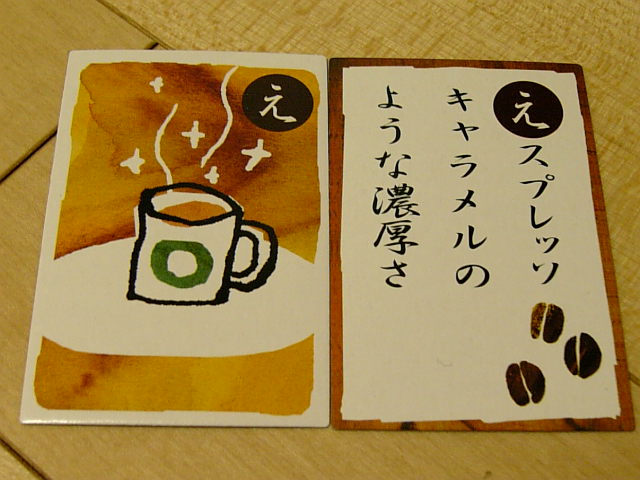 え
えスプレッソ
キャラメルの
ような濃厚さ